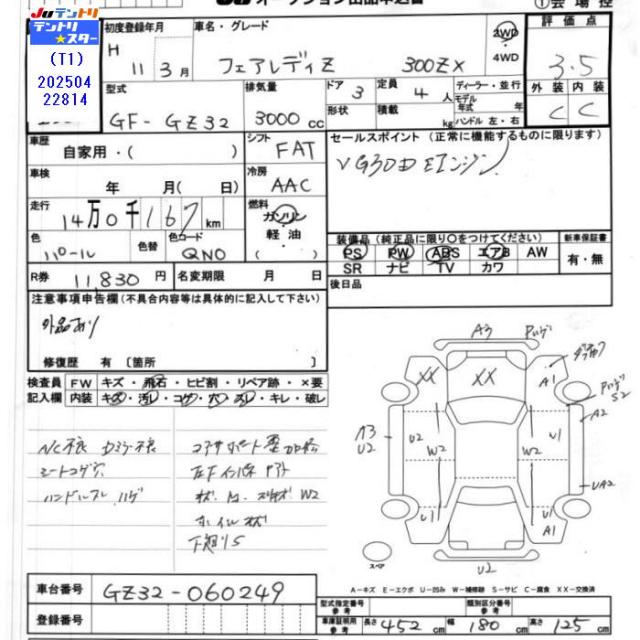 JUテントリ
テントリ★スター
(T1)
202504
22814
JU オークション出品申込書
①会場控
初度登録年月
H 11年3月
車名・グレード
フェアレディZ 300ZX
2WD
・4WD
評価点
3.5
型式
GF-GZ32
排気量
3000cc
ドア
3
形状
定員
4人
積載
kg
ディーラー・並行
モデル年式 年
ハンドル 左・右
外装 内装
C C
車歴
自家用・( )
シフト
FAT
セールスポイント (正常に機能するものに限ります)
VG30D Eエンジン
車検
年 月( 日)
冷房
AAC
走行
14万0千167km
燃料
ガソリン
軽油
色
パール
色替
色コード
QN0
装備品 (純正品に限り○をつけてください)
PS PW ABS エアB AW
SR ナビ TV カワ
新車保証書
有・無
R券
11,830円
名変期限 月 日
後日品
注意事項申告欄 (不具合内容等は具体的に記入して下さい)
外品あり
修復歴 有〔箇所 〕
検査員記入欄
FW キズ・飛石・ヒビ割・リペア跡・×要
内装 キズ・汚レ・コゲ・穴・スレ・キレ・破レ
シートコゲ穴
ハンドルスレ ハゲ
ホイルキズ
下廻りS
A3
XX XX
A1
A2
U2 W2 W2 U1
A3
U2
UA2
U1 U1
A1
U2
スペア
A-キズ E-エクボ U-凹み W-補修跡 S-サビ C-腐食 XX-交換済
車台番号
GZ32-060249
登録番号
型式指定番号
参考
類別区分番号
参考
車庫証明用
参考
長さ 452cm 幅 180cm 高さ 125cm